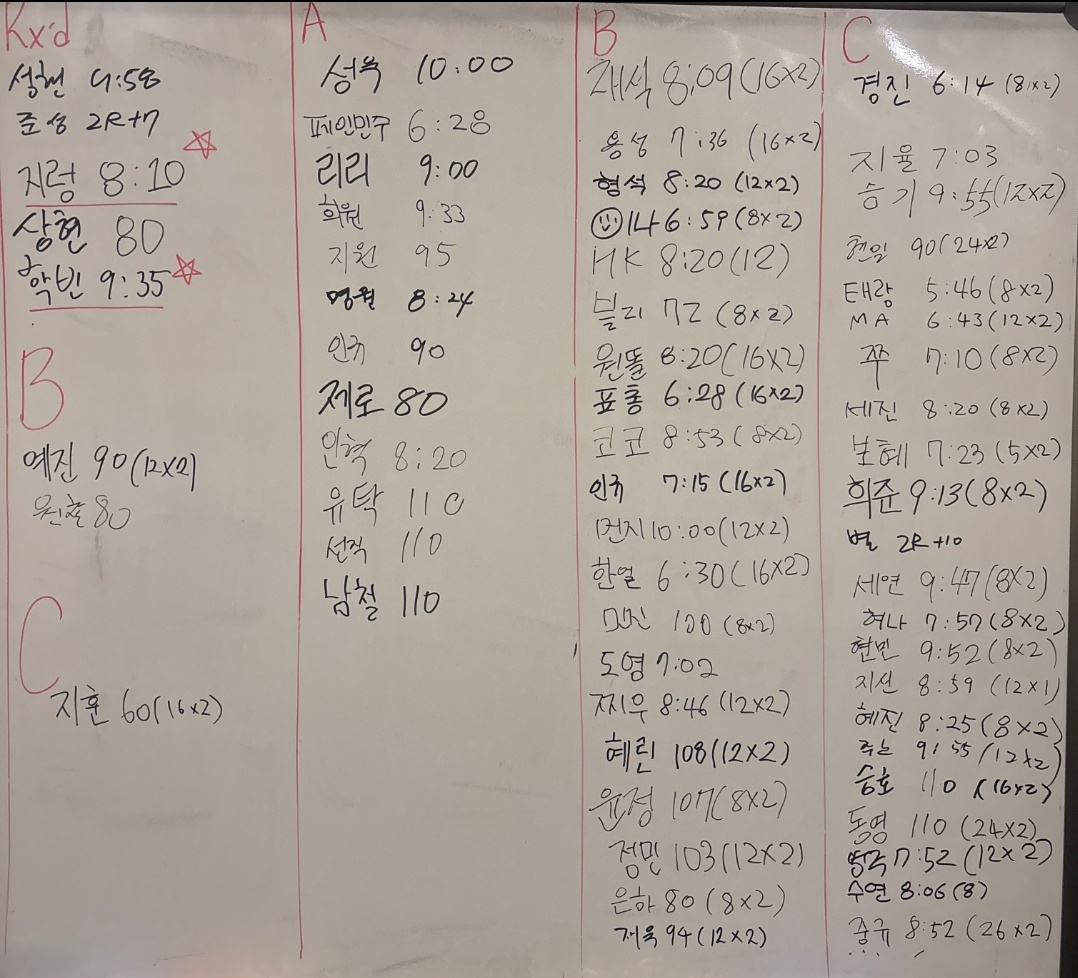 Rx'd
성현 9:58
준성 2R+7
지령 8:10
상현 80
학빈 9:35
B
예진 90(12x2)
원철 80
C
지훈 60(16x2)
A
성욱 10:00
페인민주 6:28
리리 9:00
희원 9:33
지원 95
명월 8:24
인규 90
제로 80
인혁 8:20
유탁 110
선직 110
남철 110
B
재석 8:09(16x2)
용성 7:36 (16x2)
형석 8:20 (12x2)
6:59(8x2)
HK 8:20(12)
블리 72 (8x2)
원똘 8:20(16x2)
표홍 6:28(16x2)
코코 8:53(8x2)
인규 7:15(16x2)
먼지 10:00(12x2)
한얼 6:30(16x2)
민진 100(8x2)
도영 7:02
찌우 8:46(12x2)
혜린 108(12x2)
윤정 107(8x2)
정민 103(12x2)
은하 80(8x2)
재욱 94(12x2)
C
경진 6:14(8x2)
지율 7:03
승기 9:55(12x2)
90(24x2)
태랑 5:46(8x2)
MA 6:43(12x2)
쭈 7:10(8x2)
세진 8:20(8x2)
보혜 7:23(5x2)
희준 9:13(8x2)
별 2R+10
세연 9:47(8x2)
허나 7:57(8x2)
현민 9:52(8x2)
지선 8:59(12x1)
혜진 8:25(8x2)
9:55(12x2)
승호 110(16x2)
동영 110(24x2)
7:52(12x2)
수연 8:06(8)
중규 8:52(26x2)